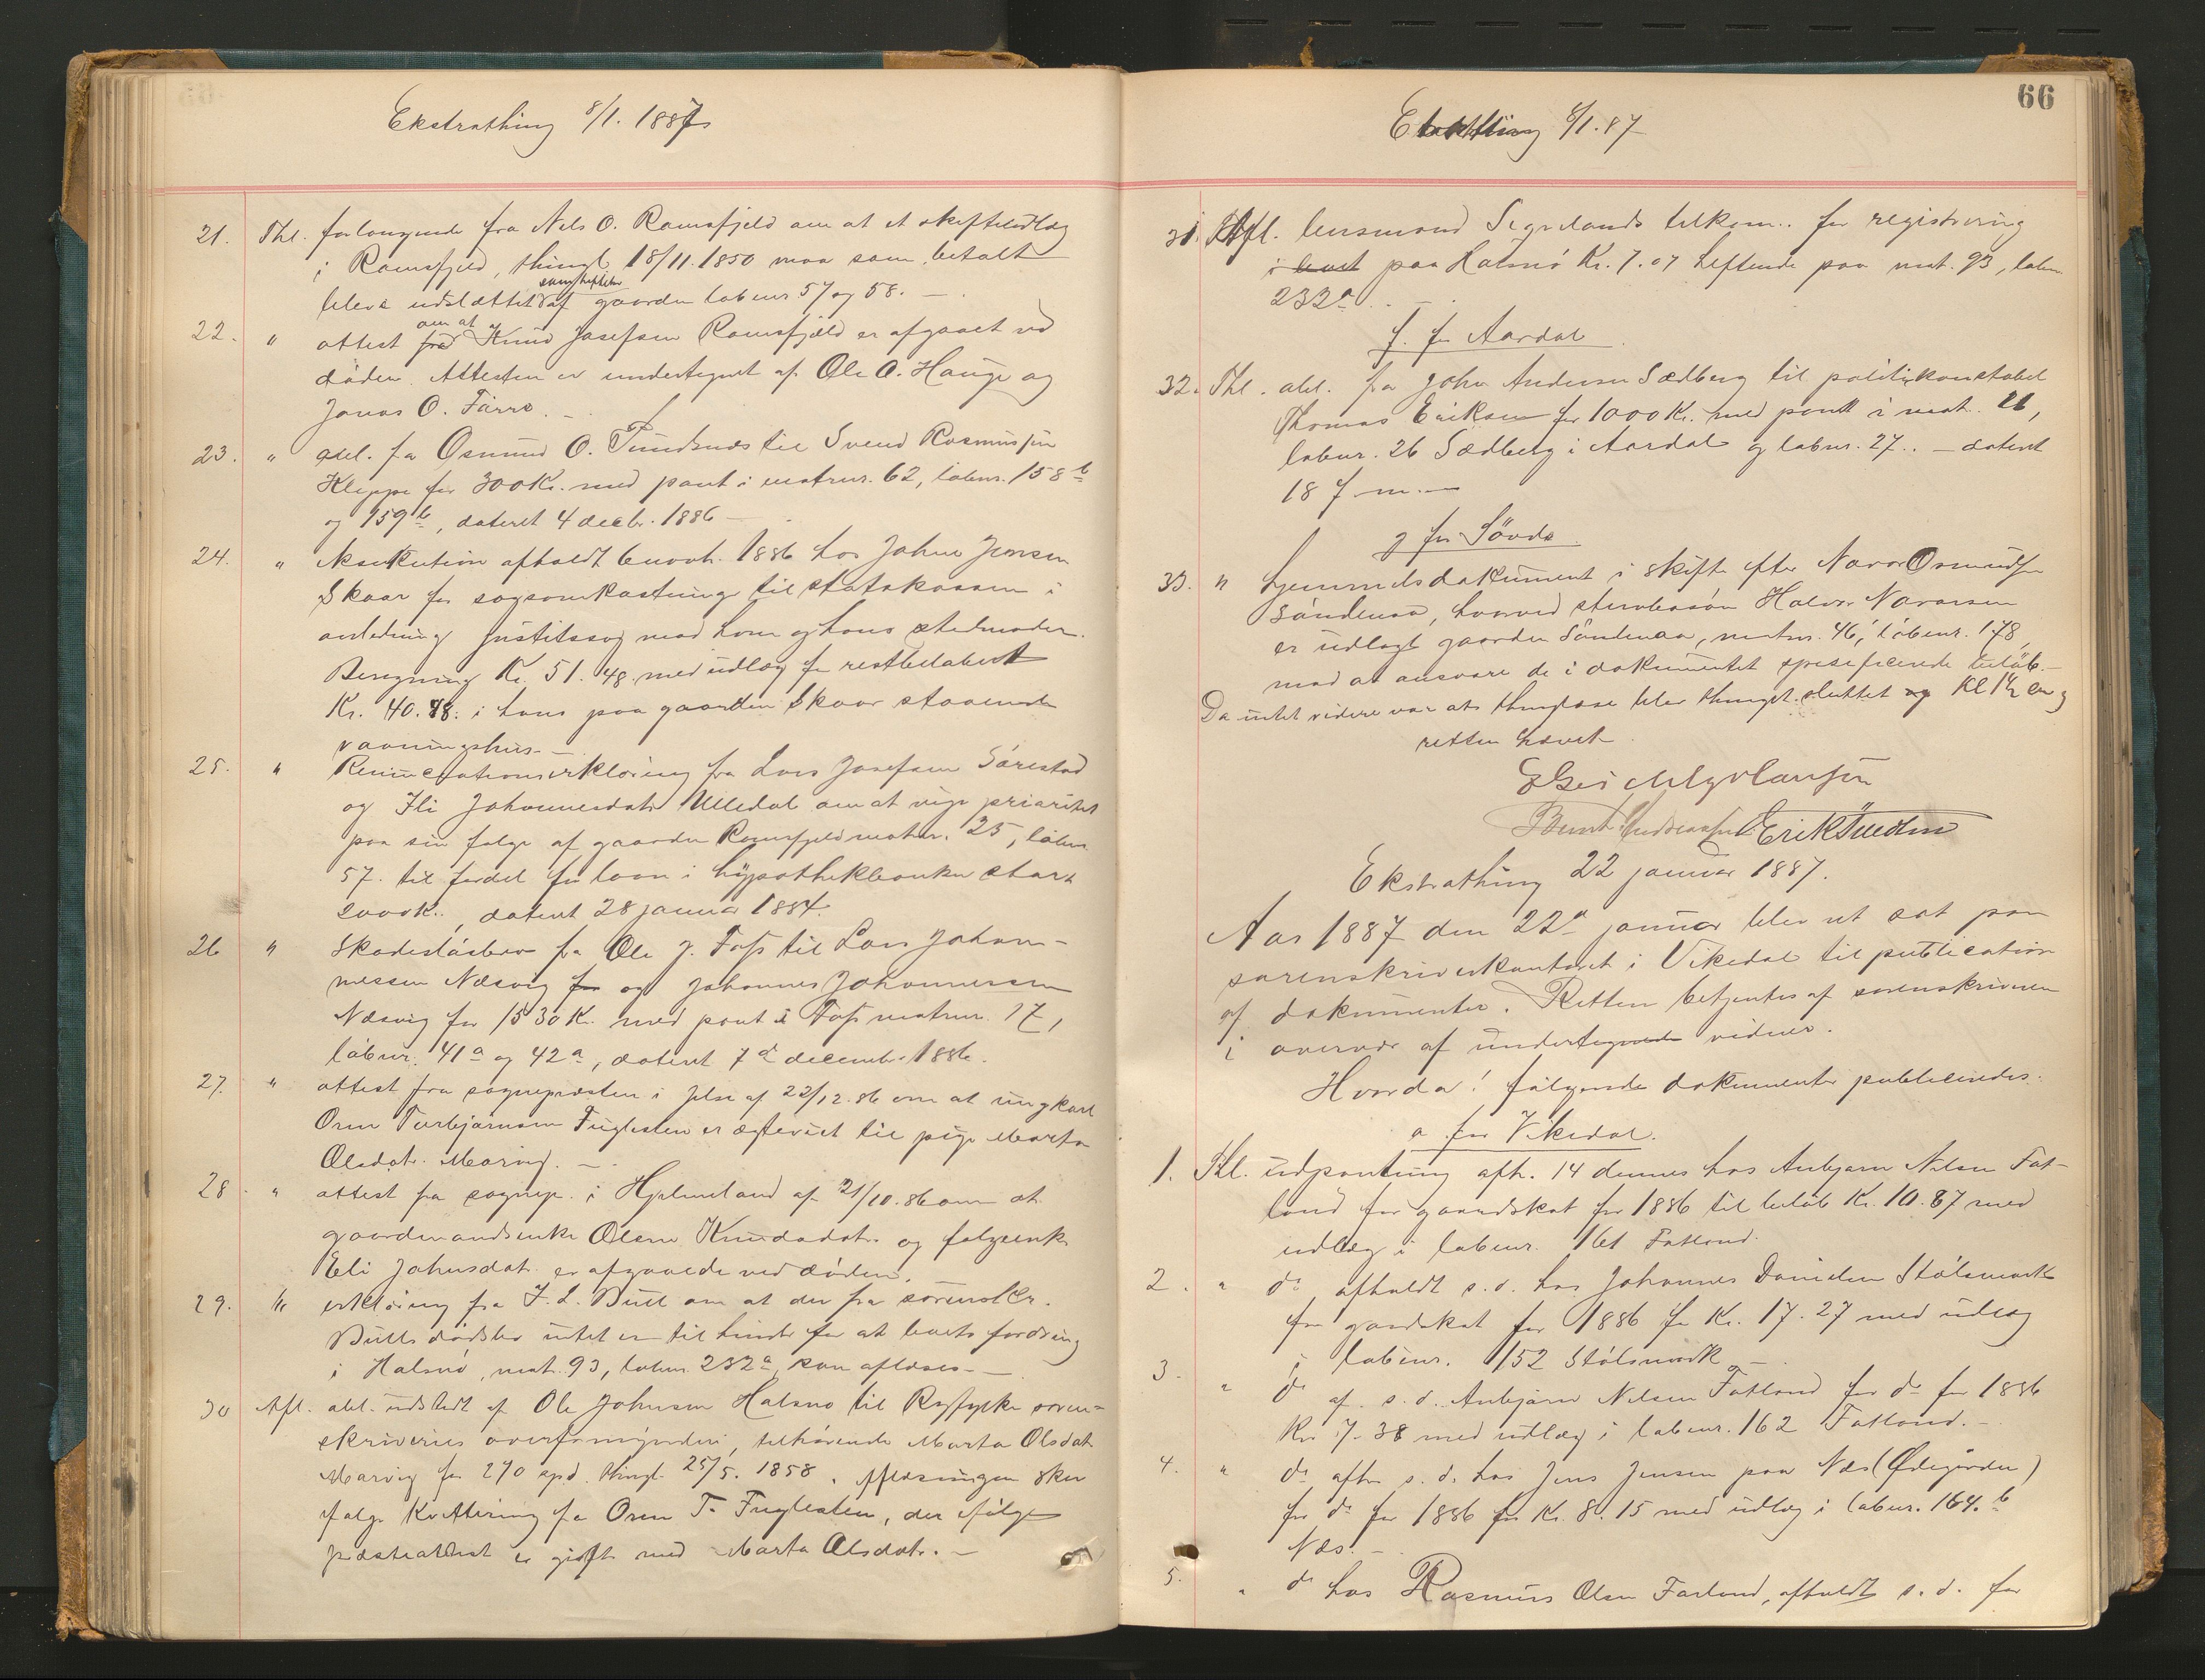 Ekstrathing 8/1. 1887
21. Thl. forlangende fra Nels O. Ramsfjeld om at et skifteudlæg
i Ramsfjeld, thingl. 18/11. 1850 maa som betalt
bleve udslettet af gaarden løbenr 57 og 58. —
22. " attest om at Knud Josefsen Ramsfjeld er afgaaet ved
døden. Attesten er undertegnet af Ole O. Hauge og
Jonas O. Tårre. —
23. " obl. fra Osmund O. Tundsnes til Svend Rasmussen
Kleppe for 300 Kr. med pant i matrnr. 62, løbenr. 158 b
og 159 b, dateret 4 decbr. 1886 —
24. " eksekution afholdt 6 novb. 1886 hos Johne Jensen
Skaar for sagsomkostninger til statskassen i
anledning justitssag mod ham og hans stedmoder.
Beregning Kr. 51. 48. med udlæg for restbeløbet
Kr. 40. 78. i hans paa gaarden Skaar staaende
vaaningshus. —
25. " Renunciationserklæring fra Lars Josefsen Sørestad
og Ili Johannesdatr Ulledal om at vige prioritet
paa sin følge af gaarden Ramsfjeld matnr. 25, løbenr
57. til fordel for laan i hypothekbanken stort
2000 Kr., dateret 28 januar 1884.
26 " Skadesløsbrev fra Ole J. Fos til Lars Johan-
nessen Næsvig og Johannes Johannessen
Næsvig for 1530 Kr. med pant i Fos matrnr. 17,
løbnr. 41 a og 42 a, dateret 7 d decembr. 1886.
27. " attest fra sognepræsten i Jelse af 22/12. 86 om at ungkarl
Orm Torbjørnsen Fuglesten er ægteviet til pige Marta
Olsdatr. Marvig. —
28 " attest fra sognep. i Hjelmeland af 21/10. 86 om at
gaardmandsenke Olene Knudsdatr. og følgeenke
Eli Johnsdatr. er afgaaede ved døden.
29. " erklæring fra J. L. Bull om at der fra sorenskr.
Bulls dødsbo intet er til hinder for at boets fordring
i Halsnø, mat. 93, løbnr. 232 a, kan aflæses —
30 Afl. obl. udstedt af Ole Johnsen Halsnø til Ryfylke soren-
skriveries overformynderi, tilhørende Marta Olsdatr
Marvig for 270 spd. thingl. 25/5. 1858. Aflæsningen sker
ifølge kvittering fra Orm T. Fuglesten, der ifølge
præsteattest er gift med Marta Olsdatr. —
66
8/1. 87
31. Afl. lensmand Sigvelands tilkom.. for registrering
paa Halsnø Kr. 7. 07 heftende paa mat. 93, løben
232 a. —
f. for Aardal
32. Thl. obl. fra John Andersen Sædberg til politikonstabel
Thomas Eriksen for 1000 Kr. med pant i mat. 21,
løbnr. 26 Sædberg i Aardal og løbnr. 27.. — dateret
18 f. m. —
g for Søvde
33. " hjemmelsdokument i skifte efter Navar Osmundsen
Søndenaa, hvorved stervbosøn Halvor Navarsen
er udlagt gaarden Søndenaa, matnr. 46, løbenr. 178,
mod at ansvare de i dokumentet spesificerede beløb. —
Da intet videre var at thinglæse blev thinget sluttet Kl 1½ em og
retten hævet.
Ekstrathing 22 januar 1887.
Aar 1887 den 22 d januar blev ret sat paa
sorenskriverkontoret i Vikedal til publication
af dokumenter. Retten betjentes af sorenskriveren
i overvær af undertegnede vidner.
Hvorda! følgende dokumenter publiceredes:
a for Vikedal.
1. Thl. udpantning afh. 14 dennes hos Anbjørn Nilsen Fat-
land for gaardskat for 1886 til beløb Kr. 10. 87 med
udlæg i løbenr. 161 Fatland.
2. " do afholdt s. d. hos Johannes Danielsen Stølsmark
for gaardskat for 1886 for Kr. 17. 27 med udlæg
i løbenr. 152 Stølsmark —
3. " do af. s. d. Anbjørn Nilsen Fatland for do for 1886
Kr 7. 38 med udlæg i løbenr. 162 Fatland. —
4. " do afh. s. d. hos Jens Jensen paa Næs (Ødegården)
for do for 1886 for Kr. 8. 15 med udlæg i løbnr. 164. b
Næs. —
5. " do hos Rasmus Olsen Farland, afholdt s. d. for